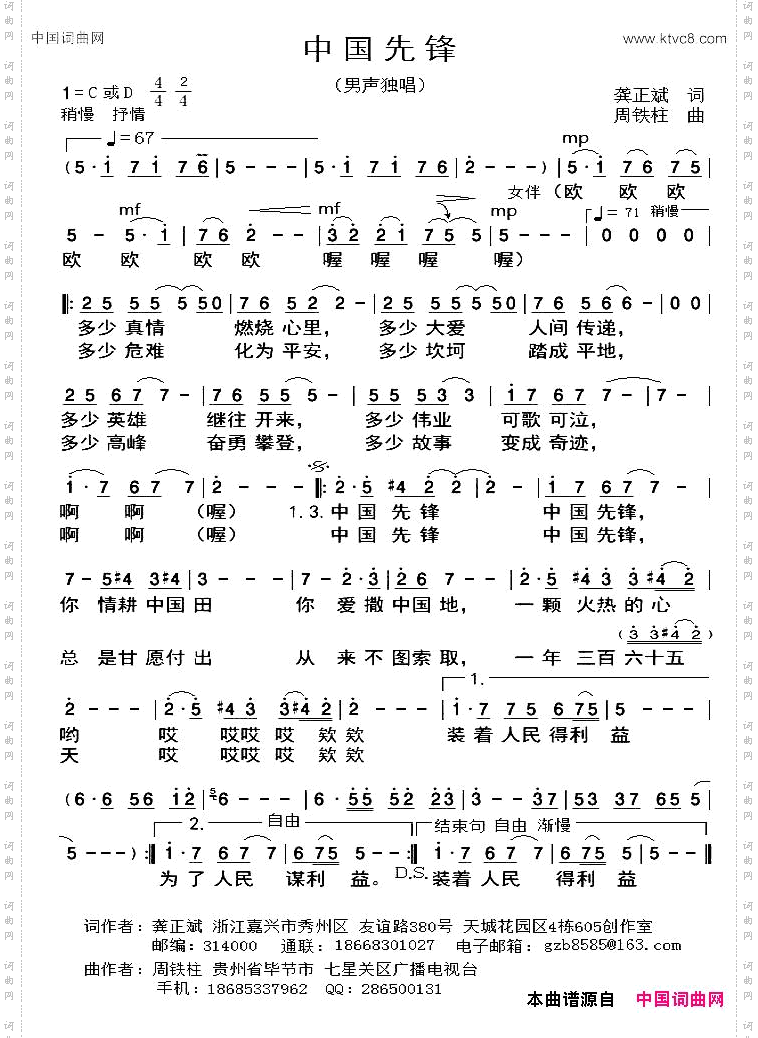 中国词曲网
www.ktvc8.com
中国先锋
（男声独唱）
1=C或D 4/4 2/4
龚正斌 词
稍慢 抒情
周铁柱 曲
♩=67
mp
(5·i 7i 76|5---|5·i 7i 76|2---)|5·i 76 75|
女伴（欧 欧 欧
mf mf mp ♩=71 稍慢
5-5·i|76 2--|32 21 75 5|5---|0 0 0 0|
欧 欧 欧 欧 喔 喔 喔 喔）
‖:25 55 5 550|76 52 2-|25 55 5550|76 56 6-|00|
多少 真情 燃烧 心里， 多少 大爱 人间 传递，
多少 危难 化为 平安， 多少 坎坷 踏成 平地，
25 67 7-|76 55 5-|55 53 3|i7 67 7-|7-|
多少 英雄 继往 开来， 多少 伟业 可歌 可泣，
多少 高峰 奋勇 攀登， 多少 故事 变成 奇迹，
i·7 67 7|2--‖:2·5 #42 2|2-|i7 67 7-|
啊 啊 （喔） 1.3.中国 先锋 中国 先锋，
啊 啊 （喔） 中国 先锋 中国 先锋，
7-5#4 3#4|3--|7-2·3|26 7--|2·5 #43 3#42|
你 情耕 中国 田 你 爱 撒 中国 地， 一 颗 火热 的 心
(3 3#42)
总 是甘 愿付 出 从 来 不 图索 取， 一 年 三百 六十五
1.
2---|2·5 #43 3#42|2---|i·7 75 675|5---|
哟 哎 哎哎 哎 欸欸 装着 人民 得利 益
天 哎 哎哎 哎 欸欸
(6·6 56 i2|6---|6·55 52 23|3--37|53 35 55|
2. 自由 结束句 自由 渐慢
5---):‖i·7 67 7|6 75 5--:‖i·7 67 7|6 75 5|5--‖
为了 人民 谋利 益。 D.S. 装着 人民 得利 益
词作者：龚正斌 浙江嘉兴市秀州区 友谊路380号 天城花园区4栋605创作室
邮编：314000 通联：18668301027 电子邮箱：gzb8585@163.com
曲作者：周铁柱 贵州省毕节市 七星关区广播电视台
手机：18685337962 QQ：286500131
本曲谱源自 中国词曲网